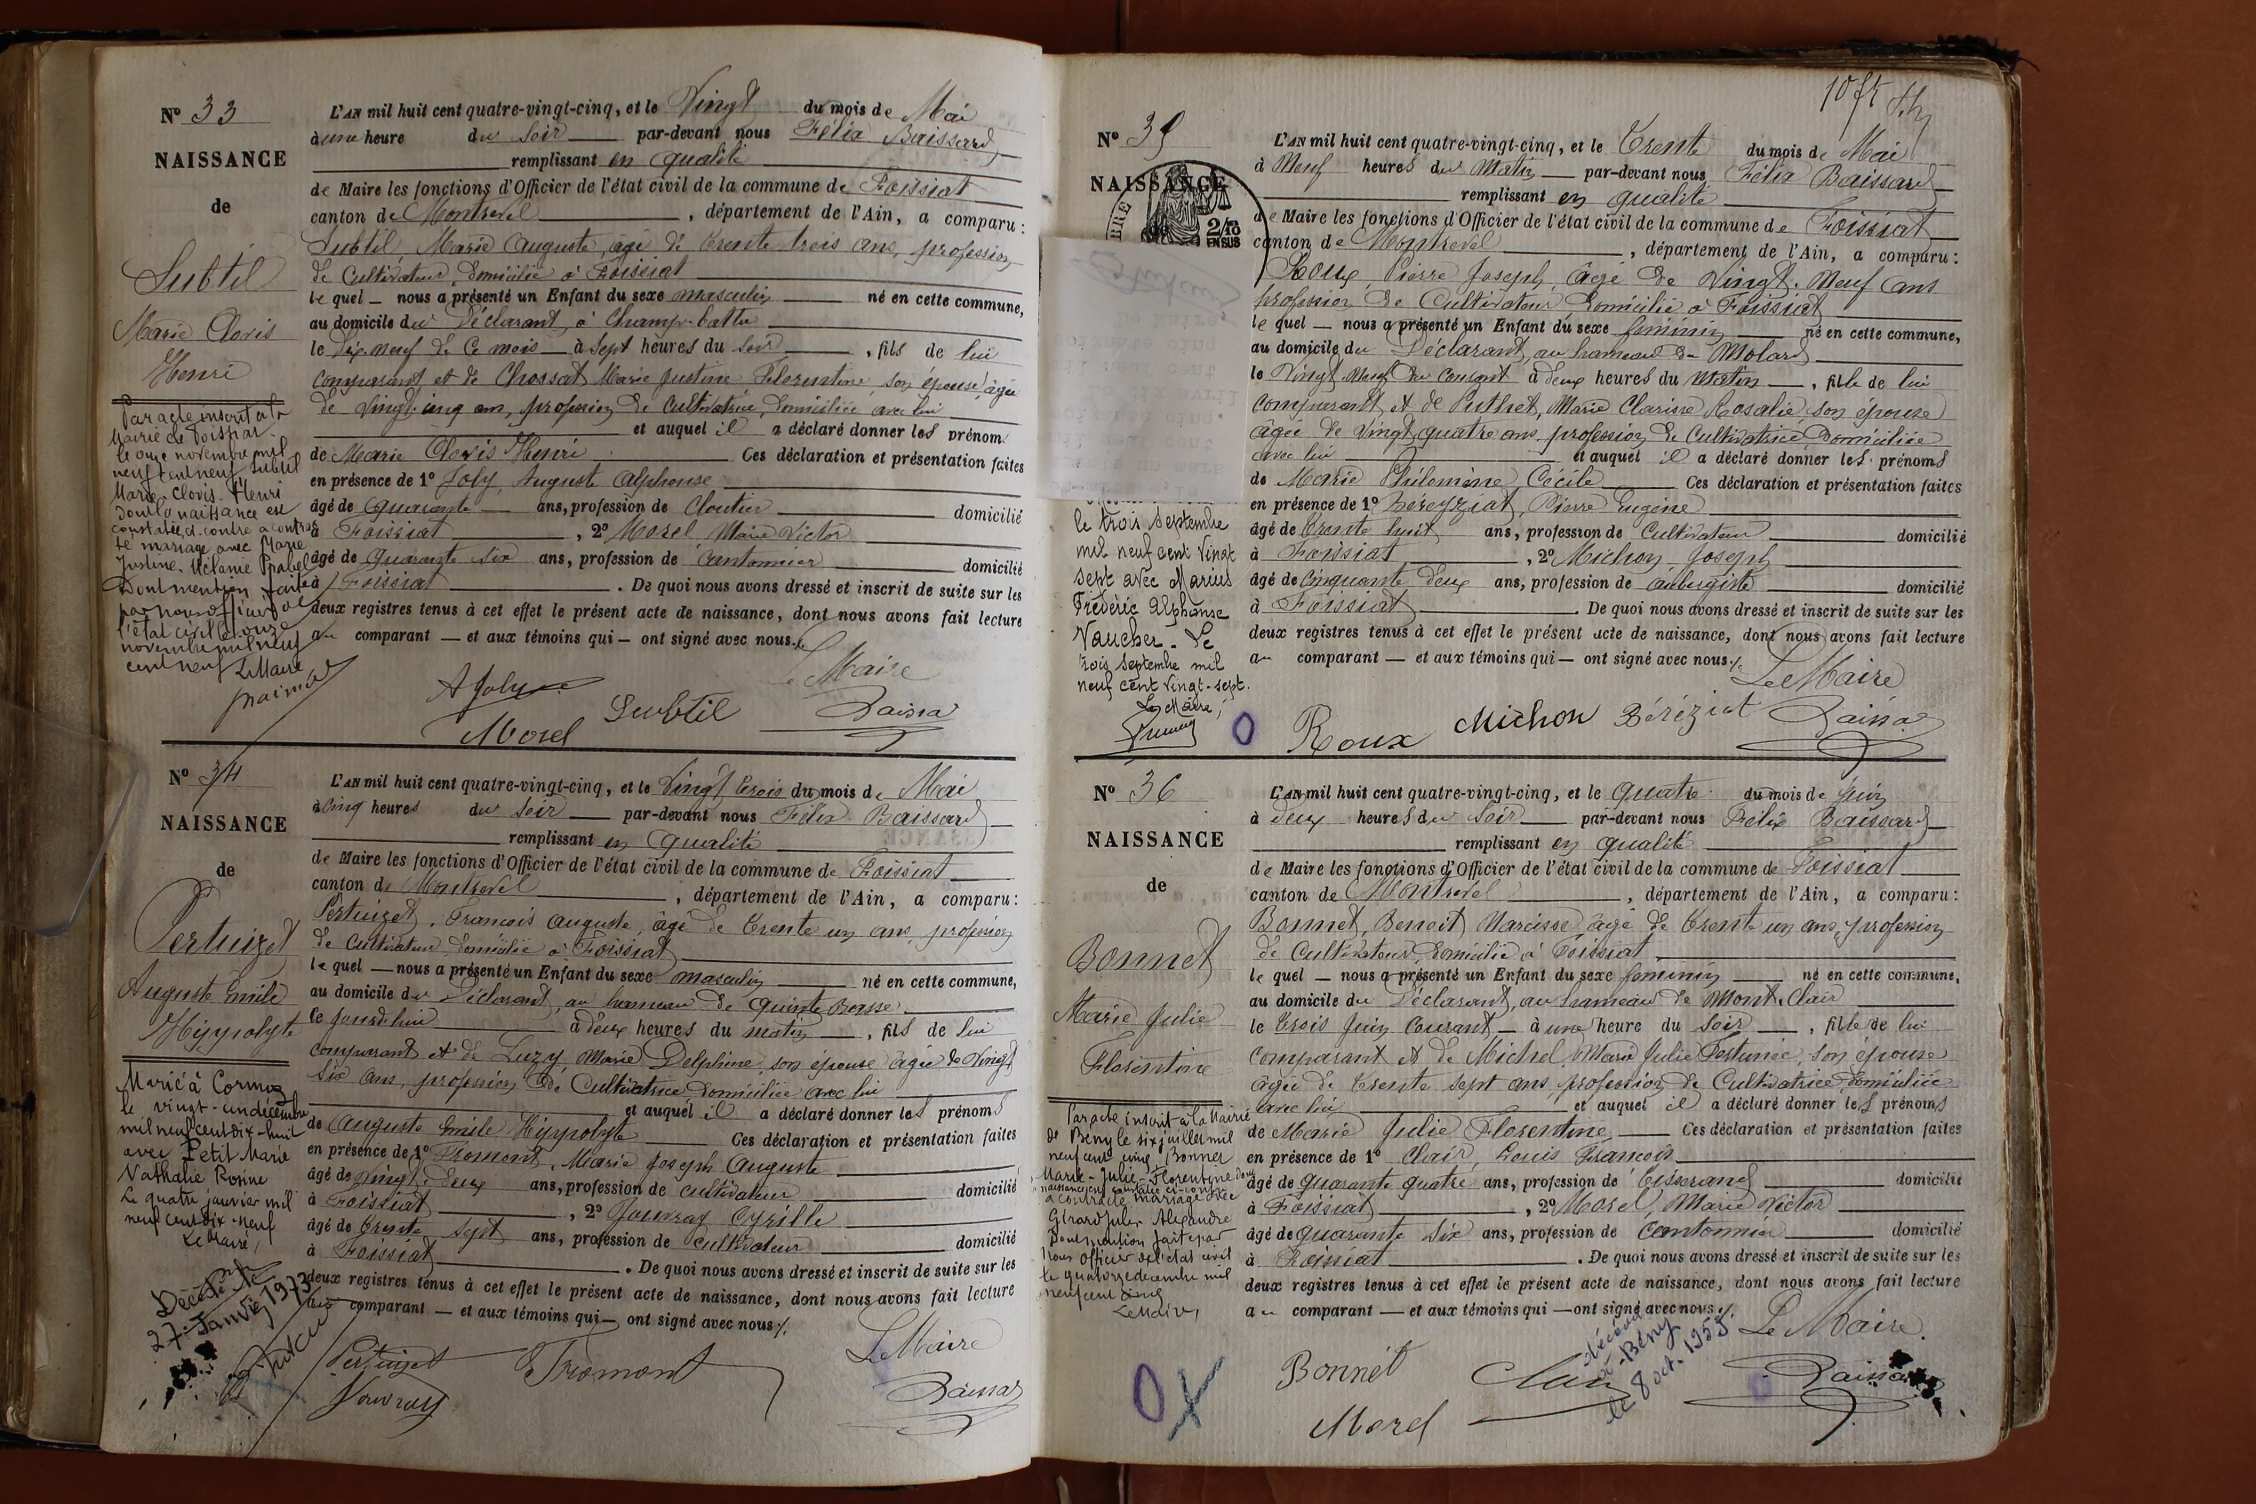 No 33
NAISSANCE
de
Subtil
Marie Clovis
Henri
Par acte inscrit à la
Mairie de Foissiat
le onze novembre mil
neuf cent neuf Subtil
Marie-Clovis-Henri
dont la naissance est
constatée ci-contre a contracté
le mariage avec Marie
Justine Mélanie
Dont mention faite
par nous officier de
l'état civil le onze
novembre mil neuf
cent neuf Le Maire
L'AN mil huit cent quatre-vingt-cinq, et le Vingt du mois de Mai
à une heure du Soir par-devant nous Félix Baissard
remplissant en qualité
de Maire les fonctions d'Officier de l'état civil de la commune de Foissiat
canton de Montrevel, département de l'Ain, a comparu :
Subtil, Marie Auguste, âgé de trente trois ans, profession
de Cultivateur, domicilié à Foissiat
le quel — nous a présenté un Enfant du sexe masculin né en cette commune,
au domicile du Déclarant, à Champ-battu
le dix neuf de ce mois à sept heures du soir, fils de lui
comparant et de Chossat Marie Justine Florentine, son épouse, âgée
de vingt-cinq ans, profession de cultivatrice, domiciliée avec lui
et auquel il a déclaré donner les prénom
de Marie Clovis Henri Ces déclaration et présentation faites
en présence de 1° Joly, Auguste Alphonse
âgé de quarante ans, profession de Cloutier domicilié
à Foissiat, 2° Morel Marie Victor
âgé de quarante six ans, profession de Cantonnier domicilié
à Foissiat. De quoi nous avons dressé et inscrit de suite sur les
deux registres tenus à cet effet le présent acte de naissance, dont nous avons fait lecture
au comparant — et aux témoins qui — ont signé avec nous.
Le Maire
A Joly
Subtil
Morel
No 34
NAISSANCE
de
Pertuizet
Auguste Emile
Hyppolyte
Marié à Cormoz
le vingt-un décembre
mil neuf cent dix-huit
avec Petit Marie
Nathalie Rosine
Le quatre janvier mil
neuf cent dix-neuf
Le Maire,
Décédé
27 Janvier 1973
L'AN mil huit cent quatre-vingt-cinq, et le Vingt trois du mois de Mai
à cinq heures du Soir par-devant nous Félix Baissard
remplissant en qualité
de Maire les fonctions d'Officier de l'état civil de la commune de Foissiat
canton de Montrevel, département de l'Ain, a comparu :
Pertuizet, Francois Auguste, âgé de trente un ans, profession
de Cultivateur, domicilié à Foissiat
le quel — nous a présenté un Enfant du sexe masculin né en cette commune,
au domicile du Déclarant, au hameau de
le jourd'hui à deux heures du matin, fils de lui
comparant et de Luzy Marie Delphine, son épouse âgée de vingt
six ans, profession de Cultivatrice, domiciliée avec lui
et auquel il a déclaré donner les prénoms
de Auguste Emile Hyppolyte Ces déclaration et présentation faites
en présence de 1° Fromont, Marie Joseph Auguste
âgé de vingt-deux ans, profession de cultivateur domicilié
à Foissiat, 2° Jouvray Cyrille
âgé de trente sept ans, profession de cultivateur domicilié
à Foissiat. De quoi nous avons dressé et inscrit de suite sur les
deux registres tenus à cet effet le présent acte de naissance, dont nous avons fait lecture
au comparant — et aux témoins qui — ont signé avec nous.
Le Maire
Pertuizet
Fromont
Jouvray
No 35
NAISSANCE
2/10
EN SUS
le trois septembre
mil neuf cent vingt
sept avec Marius
Frédéric Alphonse
Vaucher. Le
trois septembre mil
neuf cent vingt-sept.
Le Maire,
L'AN mil huit cent quatre-vingt-cinq, et le Trente du mois de Mai
à Neuf heures du Matin par-devant nous Félix Baissard
remplissant en qualité
de Maire les fonctions d'Officier de l'état civil de la commune de Foissiat
canton de Montrevel, département de l'Ain, a comparu :
Roux, Pierre Joseph, âgé de Vingt-Neuf ans
profession de Cultivateur domicilié à Foissiat
le quel — nous a présenté un Enfant du sexe féminin né en cette commune,
au domicile du Déclarant, au hameau du Molard
le Vingt Neuf du courant à deux heures du Matin, fille de lui
comparant et de Puthet, Marie Clarisse Rosalie son épouse
âgée de vingt quatre ans, profession de cultivatrice domiciliée
avec lui et auquel il a déclaré donner les prénoms
de Marie Philomène Cécile Ces déclaration et présentation faites
en présence de 1° Béreyziat, Pierre Eugène
âgé de trente huit ans, profession de Cultivateur domicilié
à Foissiat, 2° Michon, Joseph
âgé de cinquante deux ans, profession de aubergiste domicilié
à Foissiat. De quoi nous avons dressé et inscrit de suite sur les
deux registres tenus à cet effet le présent acte de naissance, dont nous avons fait lecture
au comparant — et aux témoins qui — ont signé avec nous.
Le Maire
Roux Michon Béréziat
No 36
NAISSANCE
de
Bonnet
Marie Julie
Florentine
Par acte inscrit à la Mairie
de Bény le six juillet mil
neuf cent cinq Bonnet
Marie-Julie-Florentine dont
naissance est constatée ci-contre
a contracté mariage avec
Girard Jules Alexandre
Dont mention faite par
Nous Officier de l'état civil
le quatorze décembre mil
neuf cent cinq
Le Maire,
L'AN mil huit cent quatre-vingt-cinq, et le quatre du mois de Juin
à deux heures du Soir par-devant nous Félix Baissard
remplissant en qualité
de Maire les fonctions d'Officier de l'état civil de la commune de Foissiat
canton de Montrevel, département de l'Ain, a comparu :
Bonnet, Benoit Narcisse âgé de trente un ans, profession
de Cultivateur, domicilié à Foissiat
le quel — nous a présenté un Enfant du sexe féminin né en cette commune,
au domicile du Déclarant, au hameau de Mont-Clair
le trois Juin courant à une heure du Soir, fille de lui
comparant et de Michel Marie Julie Fortunée, son épouse
âgée de trente sept ans, profession de Cultivatrice domiciliée
avec lui et auquel il a déclaré donner les prénoms
de Marie Julie Florentine Ces déclaration et présentation faites
en présence de 1° Clair, Louis François
âgé de quarante quatre ans, profession de tisserand domicilié
à Foissiat, 2° Morel, Marie Victor
âgé de quarante six ans, profession de Cantonnier domicilié
à Foissiat. De quoi nous avons dressé et inscrit de suite sur les
deux registres tenus à cet effet le présent acte de naissance, dont nous avons fait lecture
au comparant — et aux témoins qui — ont signé avec nous.
Le Maire.
Bonnet
Clair
Morel
décédée
à Bény
le 8 oct. 1955